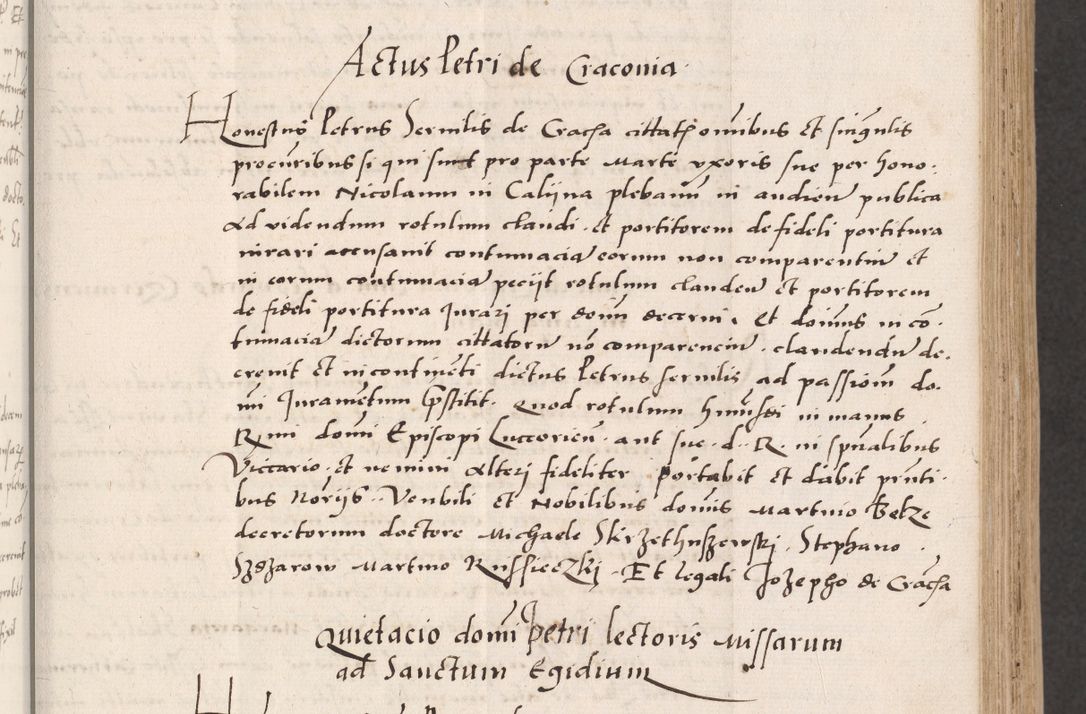 Actus Petri de Craconia
Honestus Petrus Servilis de Craca cittatis omnibus et singulis
procuribus si qui sunt pro parte Marte uxoris sue per hono-
rabilem Nicolaum in Calijna plebanum in audien publica
ad videndum rotulum claudi et portitorem de fideli portitura
iurari accusavit contumaciam eorum non comparentium et
in eorum contumaciam peciit rotulum clauden et portitorem
de fideli portitura jurari per domin decerni. Et dominus in co-
tumaciam dictorum cittatorum no comparencium claudendum de-
crevit et in continenti dictus Petrus servilis ad passionem do-
mi Juramentum prestitit. Quod rotulum in manus
Rmi domi Episcopi Luccorien aut sue d. R. in spualibus
Viccario et nemini alteri fideliter portabit et dabit pnti-
bus Norijs. Venbili et Nobilibus domis Martino Belze
decretorum doctore Michaele Skrzethuszewskj Stephano
Szdzarow Martino Russieczkij Et legali Jozepho de Craca
Quietacio domi Petri lectoris Missarum
ad Sanctum Egidium